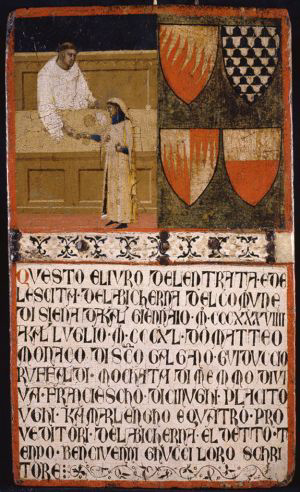 QUESTO ELIVRO DELENTRATA·E DE
LESCITA·DELABICHERNA DELCOMVNE
DI SIENA DAKAL GIENNAIO·MCCCXXXVIIII
AKAL LVGLIO·MCCCXL·DOMATTEO
MONACO·DI SCO GALGANO GVIDVCCIO
RVFFALDI·MOCHATA DI MEMMO DIVI
VA·FRANCIESCHO·
VGNI·KAMARLENGHO E QVATRO·PRO
VEDITORI·DELABICHERNA·EL DETTO·TE
NDO·BENCIVENNI GHVCCI LORO SCHRI
TORE